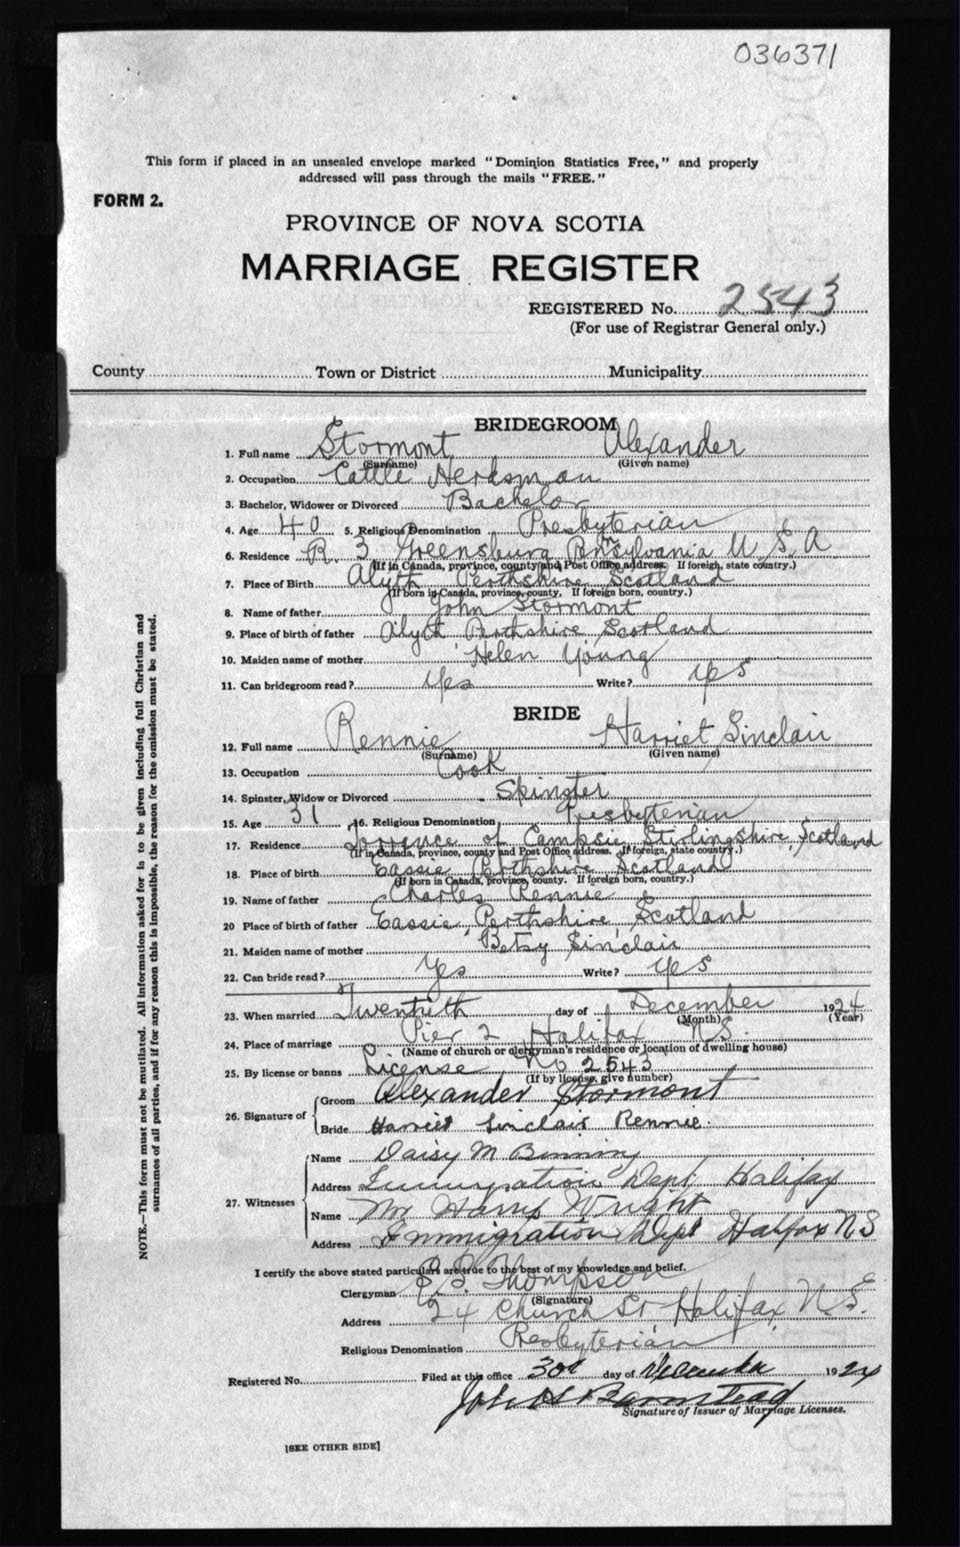 036371
This form if placed in an unsealed envelope marked "Dominion Statistics Free," and properly
addressed will pass through the mails "FREE."
FORM 2.
PROVINCE OF NOVA SCOTIA
MARRIAGE REGISTER
REGISTERED No. 2543
(For use of Registrar General only.)
County Town or District Municipality
BRIDEGROOM
1. Full name Stormont Alexander
(Surname) (Given name)
2. Occupation Cattle Herdsman
3. Bachelor, Widower or Divorced Bachelor
4. Age 40 5. Religious Denomination Presbyterian
6. Residence R. 3 Greensburg Pennsylvania U.S.A
(If in Canada, province, county and Post Office address. If foreign, state country.)
7. Place of Birth Alyth Perthshire Scotland
(If born in Canada, province, county. If foreign born, country.)
8. Name of father John Stormont
9. Place of birth of father Alyth Perthshire Scotland
10. Maiden name of mother Helen Young
11. Can bridegroom read? Yes Write? Yes
BRIDE
12. Full name Rennie Harriet Sinclair
(Surname) (Given name)
13. Occupation Cook
14. Spinster, Widow or Divorced Spinster
15. Age 31 16. Religious Denomination Presbyterian
17. Residence Torrence of Campsie Stirlingshire, Scotland
(If in Canada, province, county and Post Office address. If foreign, state country.)
18. Place of birth Eassie Perthshire Scotland
(If born in Canada, province, county. If foreign born, country.)
19. Name of father Charles Rennie
20 Place of birth of father Eassie, Perthshire, Scotland
21. Maiden name of mother Betsy Sinclair
22. Can bride read? Yes Write? Yes
23. When married Twentieth day of December 1924
(Month) (Year)
24. Place of marriage Pier 2 Halifax N.S.
(Name of church or clergyman's residence or location of dwelling house)
25. By license or banns License No 2543
(If by license, give number)
26. Signature of Groom Alexander Stormont
Bride Harriet Sinclair Rennie.
27. Witnesses Name Daisy M Binning
Address Immigration Dept Halifax
Name Mr Harry Wright
Address Immigration Dept Halifax N S
I certify the above stated particulars are true to the best of my knowledge and belief.
Clergyman Thompson
(Signature)
Address 24 Church St Halifax, N.S.
Religious Denomination Presbyterian
Registered No. Filed at this office 30th day of December 1924
Signature of Issuer of Marriage Licenses.
[SEE OTHER SIDE]
NOTE.—This form must not be mutilated. All information asked for is to be given including full Christian and
surnames of all parties, and if for any reason this is impossible, the reason for the omission must be stated.